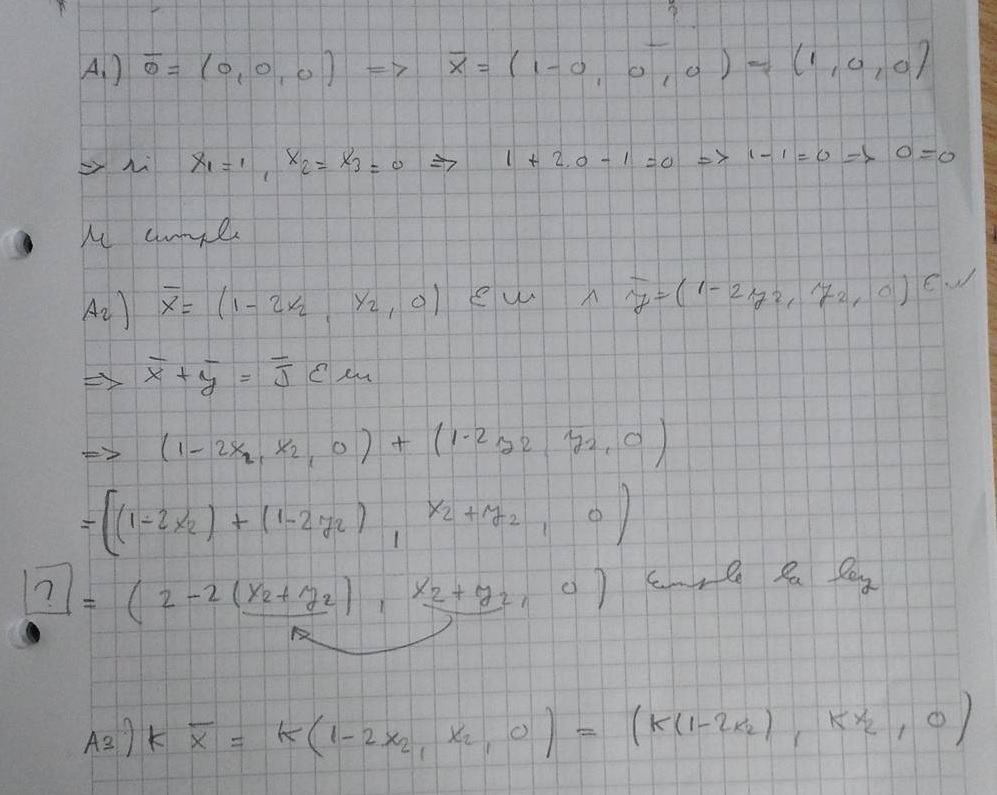 A₁) 0̄ = (0, 0, 0) => x̄ = (1-0, 0, 0) = (1, 0, 0)
=> si x₁=1, x₂=x₃=0 => 1+2.0-1=0 => 1-1=0 => 0=0
se cumple
A₂) x̄ = (1-2x₂, x₂, 0) ∈ w ∧ ȳ = (1-2y₂, y₂, 0) ∈ w
=> x̄ + ȳ = J̄ ∈ w
=> (1-2x₂, x₂, 0) + (1-2y₂, y₂, 0)
= ((1-2x₂) + (1-2y₂), x₂+y₂, 0)
? = (2-2(x₂+y₂), x₂+y₂, 0) cumple la ley
A3) K x̄ = K(1-2x₂, x₂, 0) = (K(1-2x₂), Kx₂, 0)